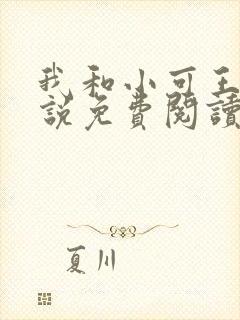 我和小可王
說免費閱讀
夏川